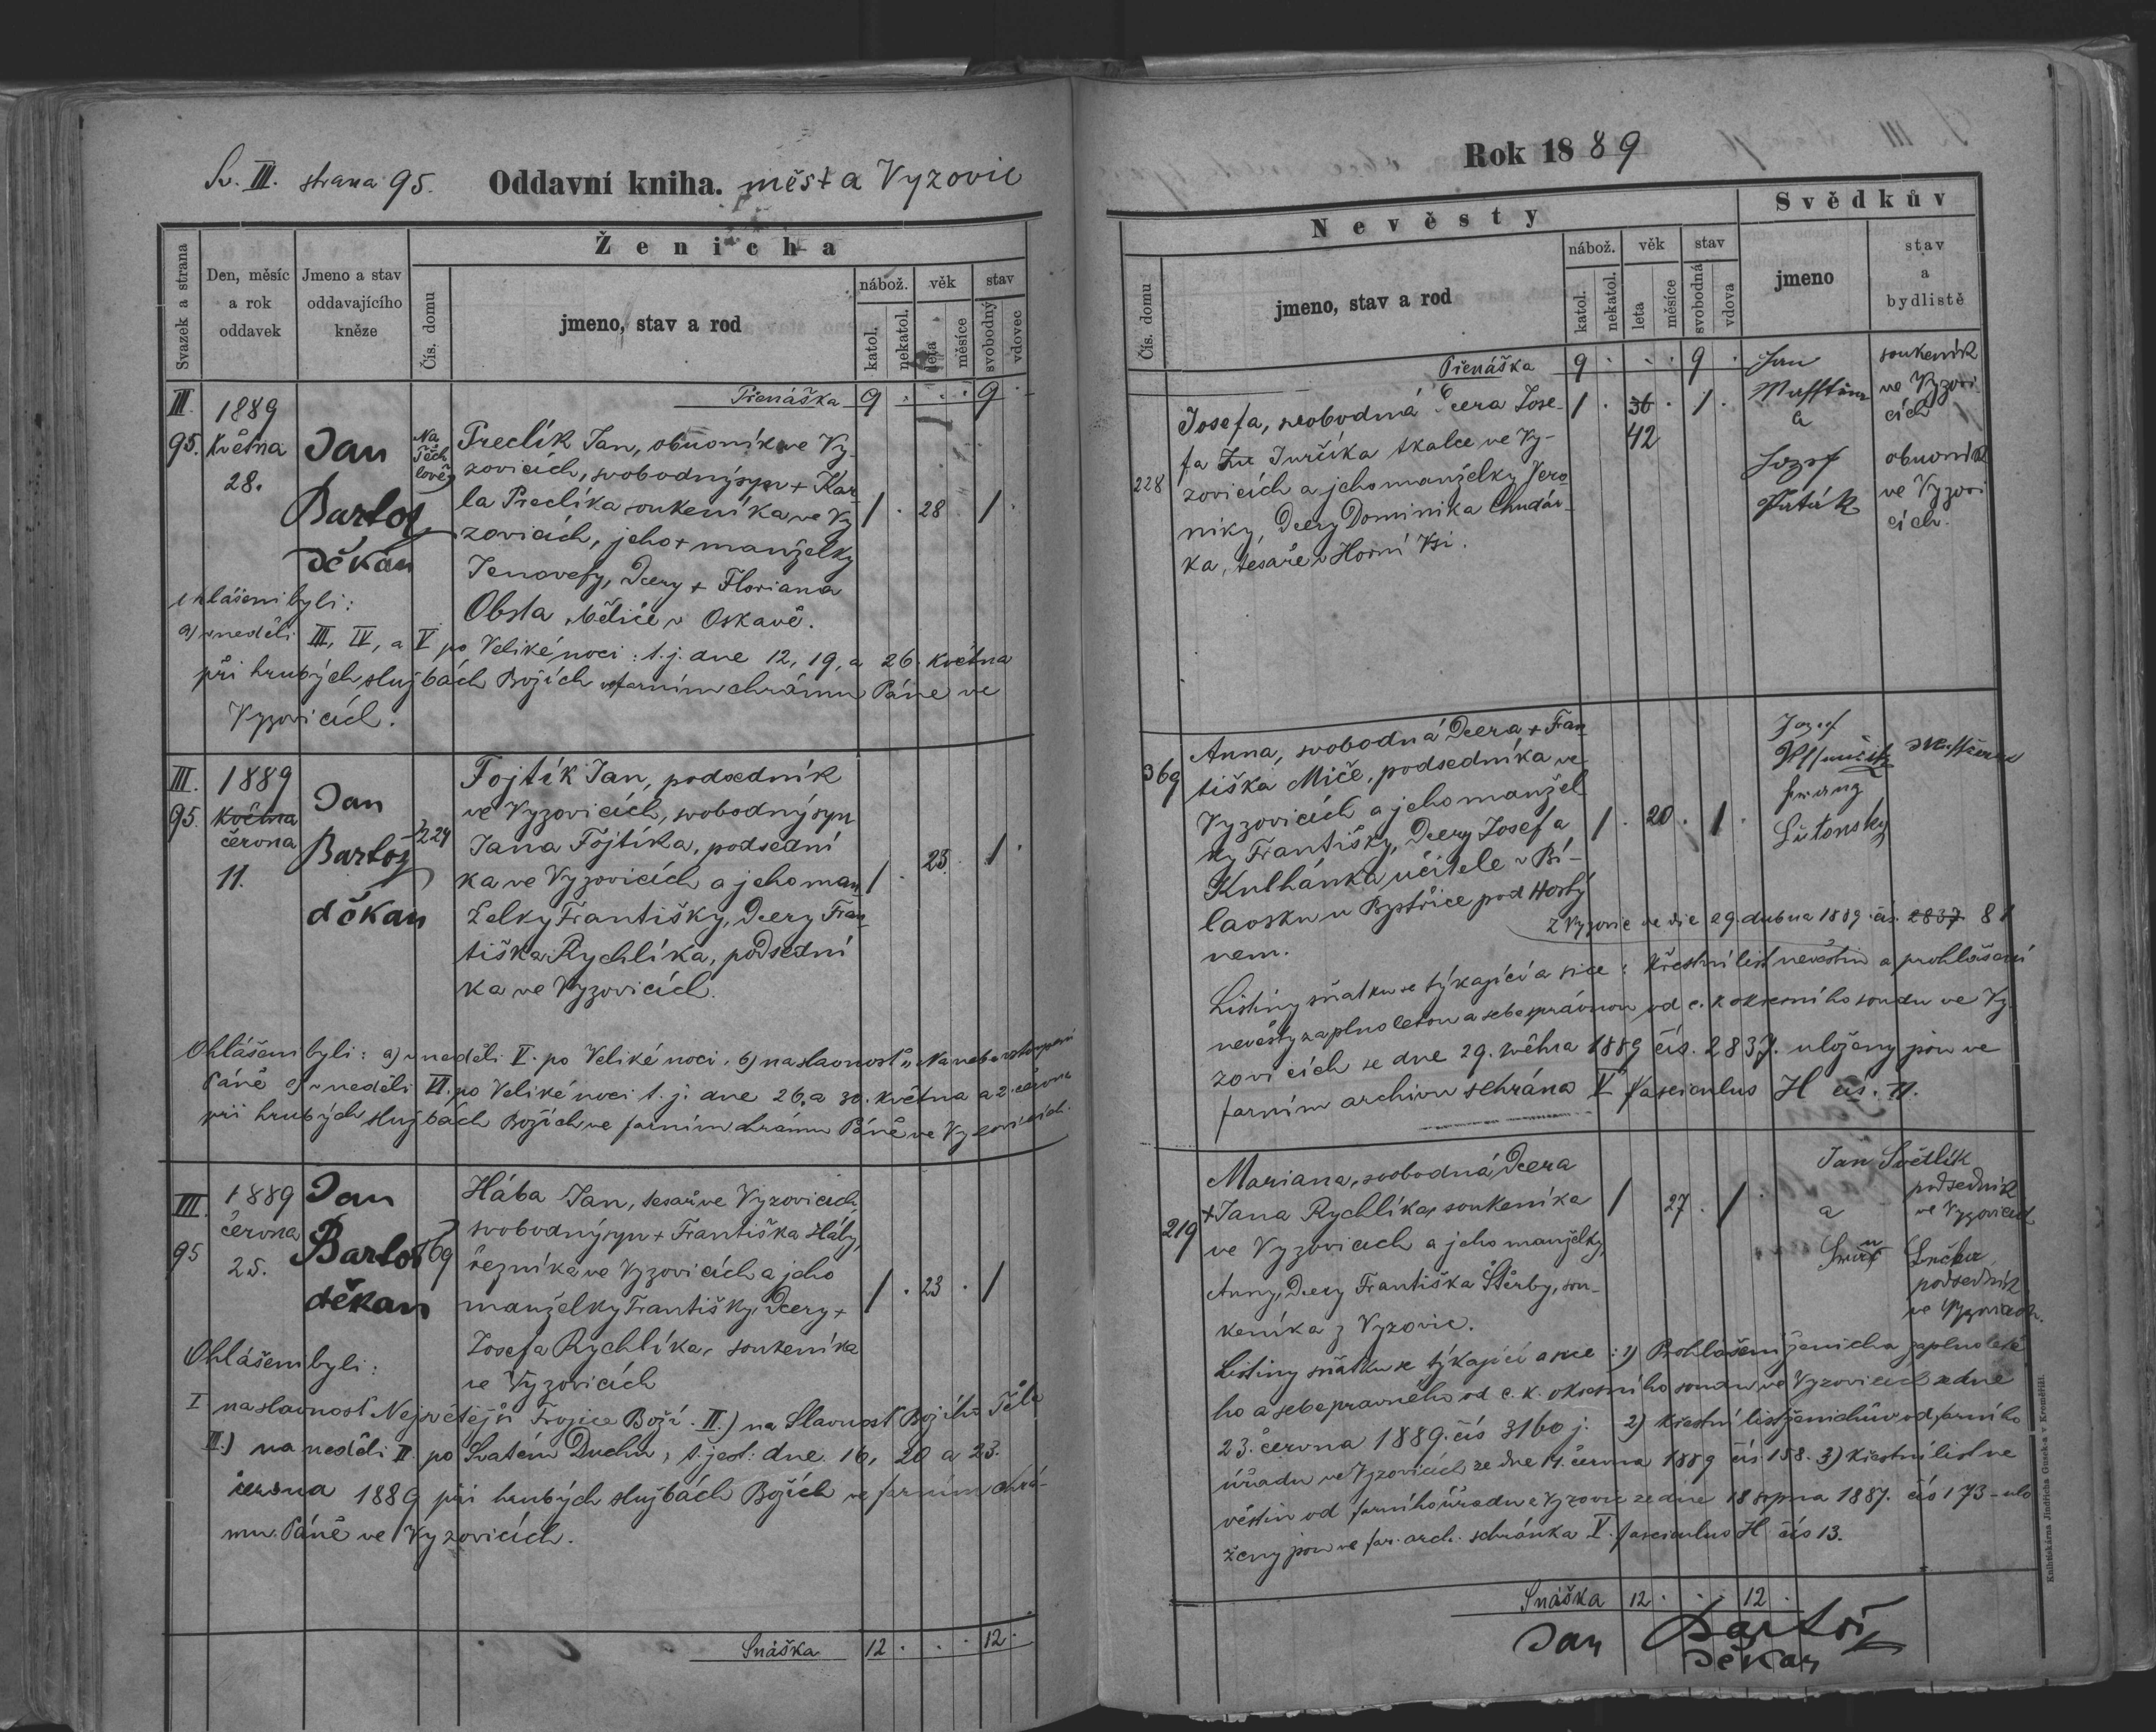 Sv. III. strana 95. Oddavní kniha. města Vyzovic
Svazek a strana
Den, měsíc a rok oddavek
Jmeno a stav oddavajícího kněze
Ženicha
Čís. domu
jmeno, stav a rod
nábož. věk stav
katol. nekatol. leta měsíce svobodný vdovec
Přenáška 9 . . . 9 .
III. 95.
1889
Května
28.
Jan
Bartoš
děkan
Na
Těch
lově
Preclík Jan, obuvník ve Vy-
zovicích, svobodný syn + Kar-
la Preclíka soukeníka ve Vy
zovicích, jeho + manželky
Jenovefy, dcery + Floriana
Obsta, běliče v Oskavě.
1 . 28 . 1 .
Ohlášeni byli:
a) v neděli III, IV, a V po Veliké noci: t. j. dne 12, 19, a 26. května
při hrubých službách Božích ve farním chrámu Páně ve
Vyzovicích.
III. 95.
1889
Května
června
11.
Jan
Bartoš
děkan
224
Fojtík Jan, podsedník
ve Vyzovicích, svobodný syn
Jana Fojtíka, podsední
ka ve Vyzovicích a jeho man
želky Františky, dcery Fran-
tiška Rychlíka, podsední
ka ve Vyzovicích.
1 . 23 . 1 .
Ohlášeni byli: a) v neděli V. po Veliké noci, b) na slavnost „Nanebevstoupení
Páně c) v neděli VI. po Veliké noci t. j. dne 26, a 30. května a 2. června
při hrubých službách Božích ve farním chrámu Páně ve Vyzovicích.
III. 95
1889
června
25.
Jan
Bartoš
děkan
69
Hába Jan, tesař ve Vyzovicích,
svobodný syn + Františka Háby,
řezníka ve Vyzovicích a jeho
manželky Františky, dcery +
Josefa Rychlíka, soukeníka
ve Vyzovicích
1 . 23 . 1
Ohlášeni byli:
I na slavnost Nejsvětější Trojice Boží. II.) na Slavnost Božího Těla
III.) na neděli II. po Svatém Duchu, t. jest: dne 16, 20 a 23.
června 1889 při hrubých službách Božích ve farním chrá-
mu Páně ve Vyzovicích.
Snáška 12 . . . 12 .
Rok 1889
Nevěsty
Svědkův
Čís. domu
jmeno, stav a rod
nábož. věk stav
katol. nekatol. leta měsíce svobodná vdova
jmeno
stav a bydliště
Přenáška 9 . . . 9 .
228
Josefa, svobodná dcera Jose-
fa Jurčíka tkalce ve Vy-
zovicích a jeho manželky Vero
niky, dcery Dominika Chudár-
ka, tesaře v Horní Vsi.
1 . 36 . 1 .
42
Jan
a
Josef
soukeník
ve Vyzovi
cích
obuvník
ve Vyzovi
cích.
369
Anna, svobodná dcera + Fran
tiška Miče, podsedníka ve
Vyzovicích a jeho manžel
ky Františky, dcery Josefa
Kulhánka učitele v Bí-
laosku u Bystřice pod Hostý
nem.
1 . 20 . 1 .
Josef
Franz
Lutonsky
z Vyzovic ze dne 29. dubna 1889 čís. 2837 81
Listiny sňatku se týkající a sice: Křestní list nevěstin a prohlášení
nevěsty za plnoletou a sebesprávnou od c. k. okresního soudu ve Vy-
zovicích ze dne 29. května 1889 čís. 2837. uloženy jsou ve
farním archivu schrána V fasciculus H čís. 11.
219
Mariana, svobodná dcera
+ Jana Rychlíka, soukeníka
ve Vyzovicích a jeho manželky,
Anny, dcery Františka Štěrby, sou-
keníka z Vyzovic.
1 27 . 1 .
Jan Světlík
podsedník
ve Vyzovicích
a
podsedník
ve Vyzovicích.
Listiny sňatku se týkající a sice: 1) Prohlášení ženicha za plnoleté
ho a sebesprávného od c. k. okresního soudu ve Vyzovicích ze dne
23. června 1889. čís 3160 j. 2) křestní list ženichův od farního
úřadu ve Vyzovicích ze dne 14. června 1889 čís 158. 3) Křestní list ne
věstin od farního úřadu z Vyzovic ze dne 18 srpna 1887. čís 173 - ulo
ženy jsou ve far. arch. schránka V. fasciculus H čís 13.
Snáška 12 . . . 12 .
Jan Bartoš
děkan